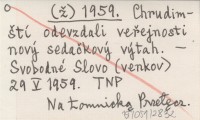 (ž) 1959. Chrudim-
ští odevzdali veřejnosti
nový sedačkový výtah. —
Svobodné Slovo (venkov)
29 V 1959. TNP
Na Lomnicka